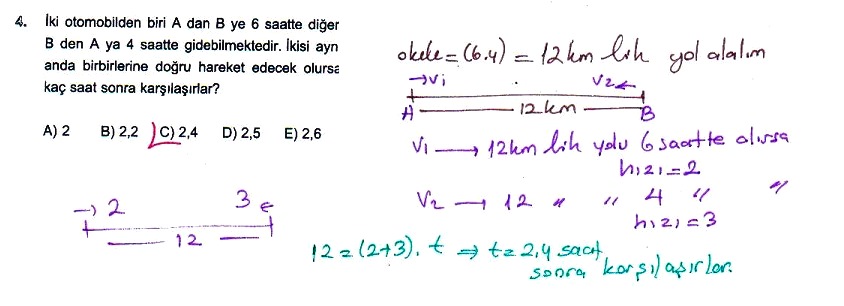 4. İki otomobilden biri A dan B ye 6 saatte diğer
B den A ya 4 saatte gidebilmektedir. İkisi ayn
anda birbirlerine doğru hareket edecek olursa
kaç saat sonra karşılaşırlar?
A) 2 B) 2,2 C) 2,4 D) 2,5 E) 2,6
okek = (6.4) = 12 km lik yol alalım
→V1 V2←
A 12 km B
V1 → 12 km lik yolu 6 saatte alırsa
hızı = 2
V2 → 12 " " 4 " "
hızı = 3
→ 2 3 ←
12
12 = (2+3). t ⇒ t = 2,4 saat
sonra karşılaşırlar.